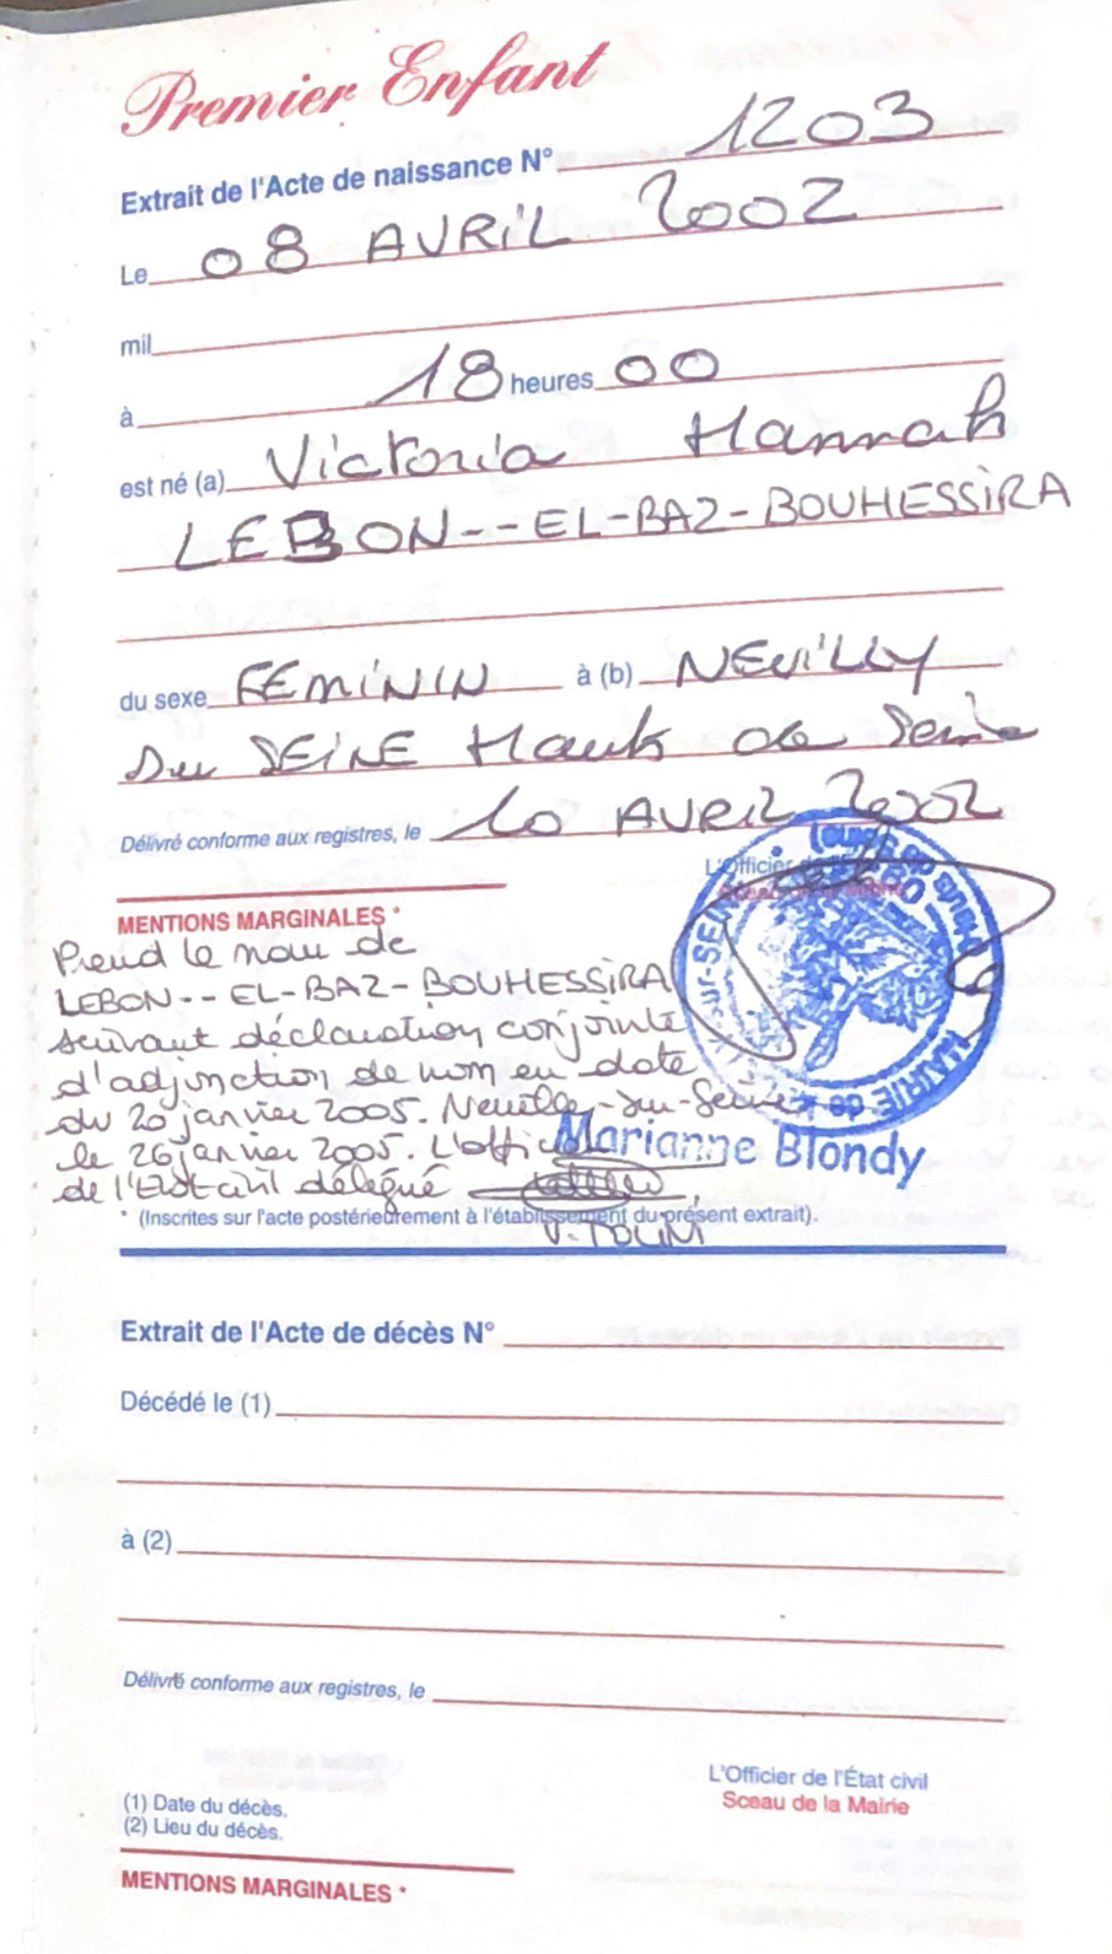 Premier Enfant
Extrait de l'Acte de naissance N° 1203
Le 08 AVRIL 2002
mil
à 18 heures 00
est né (a) Victoria Hannah
LEBON--EL-BAZ-BOUHESSIRA
du sexe FEMININ à (b) NEUILLY
sur SEINE Hauts de Seine
Délivré conforme aux registres, le 10 AVRIL 2002
L'Officier
MENTIONS MARGINALES *
Prend le nom de
LEBON--EL-BAZ-BOUHESSIRA
suivant déclaration conjointe
d'adjonction de nom en date
du 20 janvier 2005. Neuilly-sur-Seine
le 26 janvier 2005. L'officier
de l'Etat civil délégué
Marianne Blondy
* (Inscrites sur l'acte postérieurement à l'établissement du présent extrait).
Extrait de l'Acte de décès N°
Décédé le (1)
à (2)
Délivré conforme aux registres, le
L'Officier de l'État civil
Sceau de la Mairie
(1) Date du décès.
(2) Lieu du décès.
MENTIONS MARGINALES *